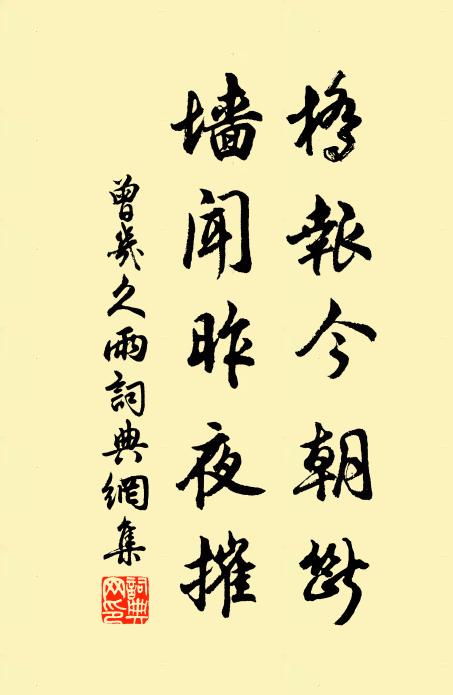 橋報今朝斷
墻聞昨夜摧
曾幾久雨詞典網集
詞典網印